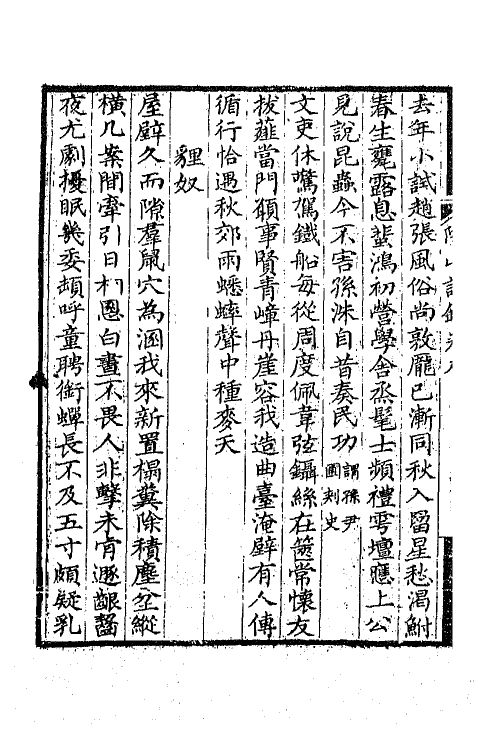 去年小試趙張風俗尚敦龐已漸同秋入罶星愁涸鮒
春生甕露息蜚鴻初營學舍烝髦士頻禮雩壇應上公
見說昆蟲今不害孫洙自昔奏民功謂孫尹國刺史
文吏休驚駕鐵船每從周度佩韋弦鑷絲在篋常懷友
拔薤當門頗事賢青嶂丹崖容我造曲臺淹壁有人傳
循行恰遇秋郊雨蟋蟀聲中種麥天
貍奴
屋壁久而隙羣鼠穴為溷我來新置榻糞除積塵坌縱
橫几案間牽引日相恩白晝不畏人非擊未肯遯齦齧
夜尤劇擾眠幾委頓呼童聘銜蟬長不及五寸頗疑乳